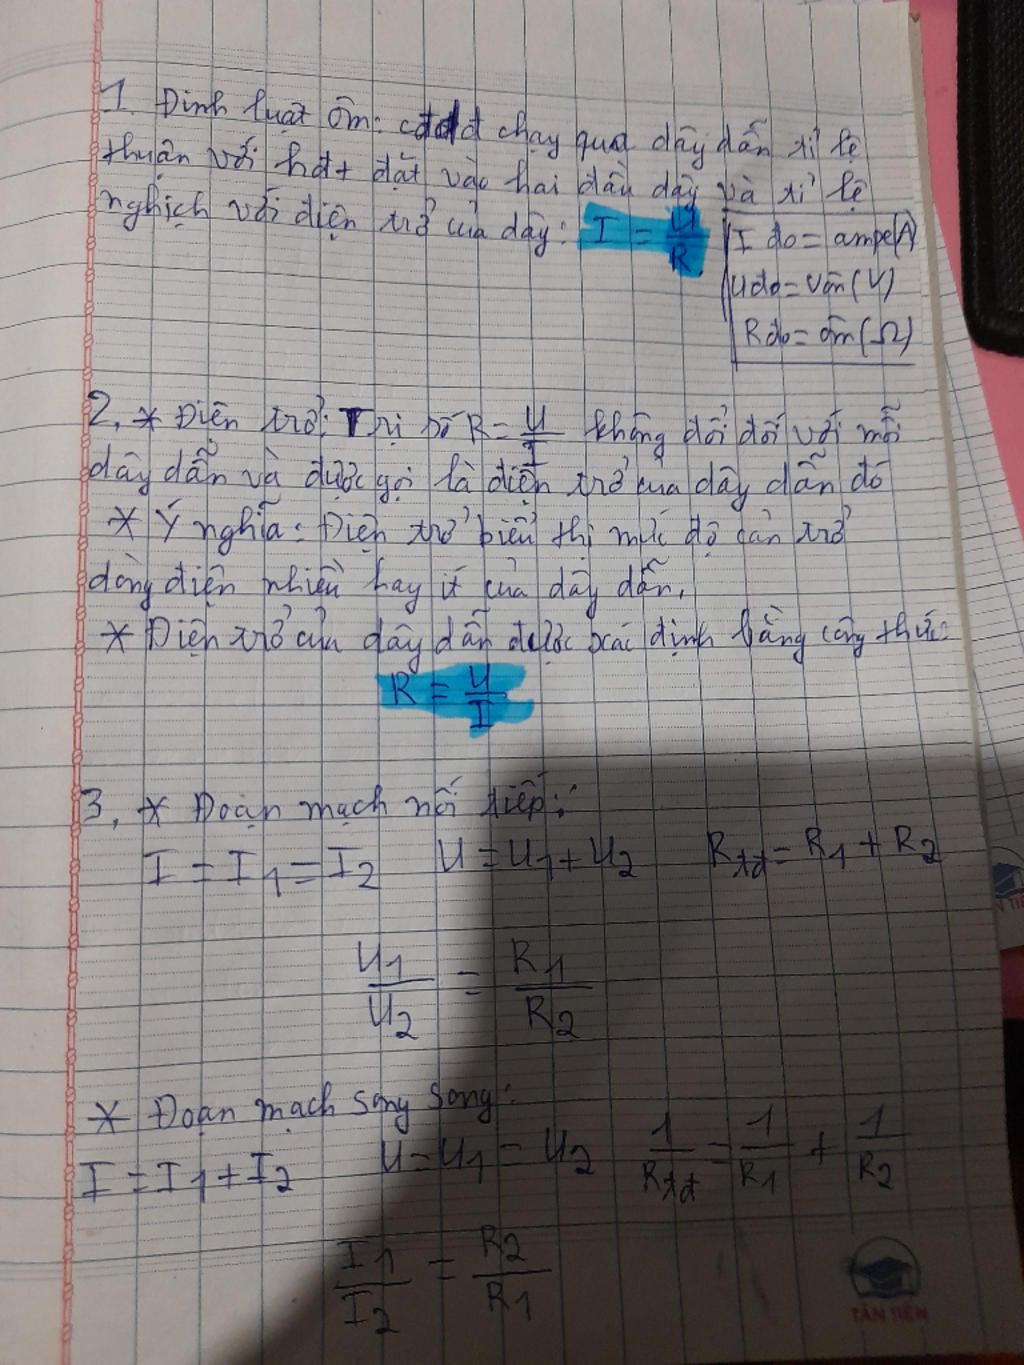 1. Định luật ôm: cđdđ chạy qua dây dẫn tỉ lệ
thuận với hđt đặt vào hai đầu dây và tỉ lệ
nghịch với điện trở của dây: I = U/R
I đo = ampe(A)
U đo = vôn (V)
R đo = ôm (Ω)
2, * Điện trở: Trị số R = U/I không đổi đối với mỗi
dây dẫn và được gọi là điện trở của dây dẫn đó
* Ý nghĩa: Điện trở biểu thị mức độ cản trở
dòng điện nhiều hay ít của dây dẫn,
* Điện trở của dây dẫn được xác định bằng công thức:
R = U/I
3, * Đoạn mạch nối tiếp:
I = I1 = I2 U = U1 + U2 Rtđ = R1 + R2
U1/U2 = R1/R2
* Đoạn mạch song song:
I = I1 + I2 U = U1 = U2 1/Rtđ = 1/R1 + 1/R2
I1/I2 = R2/R1
TÂN TIẾN